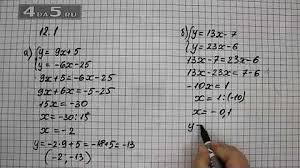 4da5.ru
12.1
а) {y = 9x + 5
{y = -6x - 25
9x + 5 = -6x - 25
9x + 6x = -25 - 5
15x = -30
x = -30 : 15
x = -2
y = -2·9 + 5 = -18 + 5 = -13
(-2; -13)
б) {y = 13x - 7
{y = 23x - 6
13x - 7 = 23x - 6
13x - 23x = 7 - 6
-10x = 1
x = 1 : (-10)
x = -0,1
y =